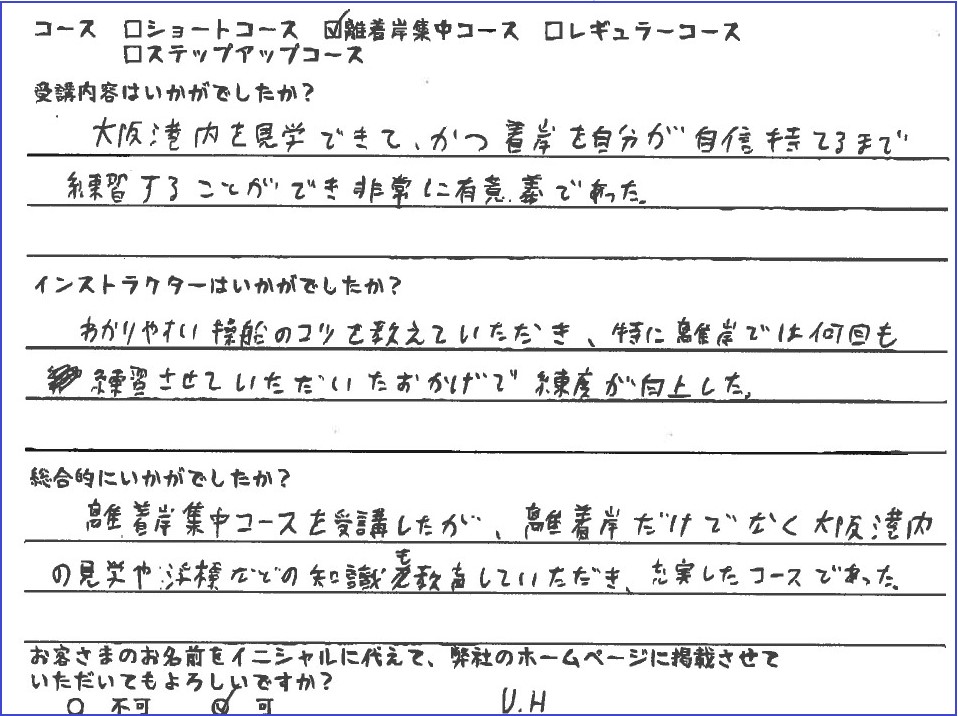 コース □ショートコース ☑離着岸集中コース □レギュラーコース
□ステップアップコース
受講内容はいかがでしたか？
大阪港内を見学できて、かつ着岸を自分が自信持てるまで
練習することができ非常に有意義であった。
インストラクターはいかがでしたか？
わかりやすい操船のコツを教えていただき、特に離岸では何回も
練習させていただいたおかげで練度が向上した。
総合的にいかがでしたか？
離着岸集中コースを受講したが、離着岸だけでなく大阪港内
の見学や浮標などの知識も教育していただき、充実したコースであった。
お客さまのお名前をイニシャルに代えて、弊社のホームページに掲載させて
いただいてもよろしいですか？
○ 不可 ☑ 可 U.H